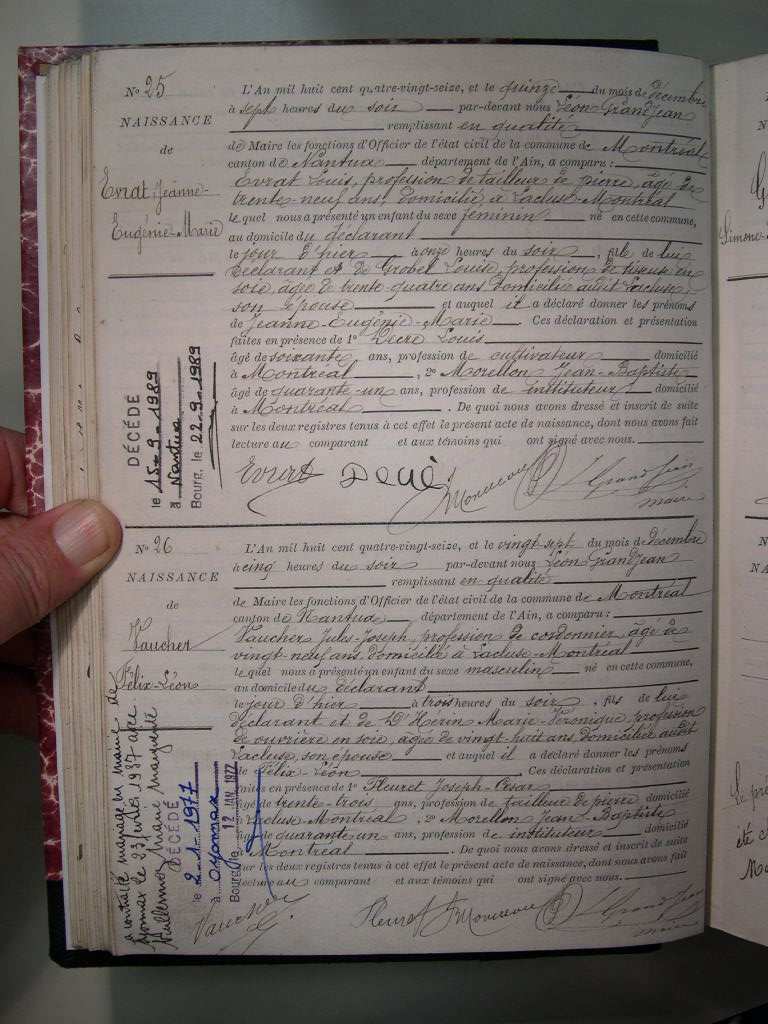 No 25
NAISSANCE
de
Evrat Jeanne-
Eugénie-Marie
L'An mil huit cent quatre-vingt-seize, et le quinze du mois de décembre
à sept heures du soir par-devant nous Léon GrandJean
remplissant en qualité
de Maire les fonctions d'Officier de l'état civil de la commune de Montréal
canton de Nantua département de l'Ain, a comparu :
Evrat Louis, profession de tailleur de pierre, âgé de
trente-neuf ans, domicilié à Lacluse-Montréal
lequel nous a présenté un enfant du sexe féminin né en cette commune,
au domicile du déclarant
le jour d'hier à onze heures du soir, fille de lui
déclarant et de Grobel Louise, profession de tisseuse en
soie âgée de trente-quatre ans domiciliée audit Lacluse,
son épouse et auquel il a déclaré donner les prénoms
de Jeanne-Eugénie-Marie Ces déclaration et présentation
faites en présence de 1o Louis
âgé de soixante ans, profession de cultivateur domicilié
à Montréal, 2o Morellon Jean-Baptiste
âgé de quarante-un ans, profession de instituteur domicilié
à Montréal. De quoi nous avons dressé et inscrit de suite
sur les deux registres tenus à cet effet le présent acte de naissance, dont nous avons fait
lecture au comparant et aux témoins qui ont signé avec nous.
DÉCÉDÉ
le 15-9-1989
à Nantua
Bourg, le 22-9-1989
Evrat
GrandJean
maire
No 26
NAISSANCE
de
Vaucher
Félix-Léon
L'An mil huit cent quatre-vingt-seize, et le vingt-sept du mois de décembre
à cinq heures du soir par-devant nous Léon GrandJean
remplissant en qualité
de Maire les fonctions d'Officier de l'état civil de la commune de Montréal
canton de Nantua département de l'Ain, a comparu :
Vaucher Jules-Joseph, profession de cordonnier, âgé de
vingt-neuf ans domicilié à Lacluse-Montréal
lequel nous a présenté un enfant du sexe masculin né en cette commune,
au domicile du déclarant
le jour d'hier à trois heures du soir, fils de lui
déclarant et de D'Herin Marie-Véronique, profession
de ouvrière en soie, âgée de vingt-huit ans domiciliée audit
Lacluse, son épouse et auquel il a déclaré donner les prénoms
de Félix-Léon Ces déclaration et présentation
faites en présence de 1o Fleuret Joseph-César
âgé de trente-trois ans, profession de tailleur de pierre domicilié
à Lacluse-Montréal. 2o Morellon Jean-Baptiste
âgé de quarante-un ans, profession de instituteur domicilié
à Montréal. De quoi nous avons dressé et inscrit de suite
sur les deux registres tenus à cet effet le présent acte de naissance, dont nous avons fait
lecture au comparant et aux témoins qui ont signé avec nous.
a contracté mariage en mairie de
Oyonnax le 23 février 1937 avec
Vuillermoz Marguerite
DÉCÉDÉ
le 2-1-1977
à Oyonnax
Bourg, le 12 JAN. 1977
Vaucher J.
Fleuret
GrandJean
maire
Simone-